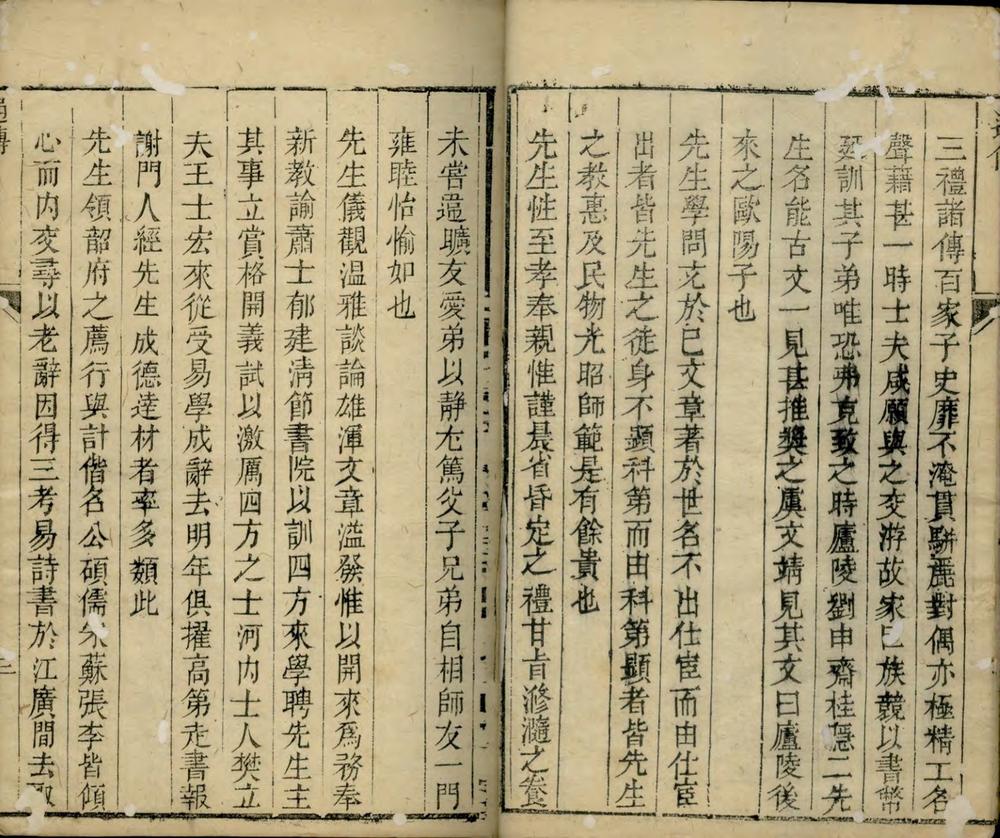 三禮諸傳百家子史靡不淹貫駢麗對偶亦極精工名
聲藉甚一時士夫咸願與之交游故家巨族競以書幣
延訓其子弟唯恐弗克致之時廬陵劉申齋桂隱二先
生名能古文一見甚推奬之虞文靖見其文曰廬陵後
來之歐陽子也
先生學問充於己文章著於世名不出仕宦而由仕宦
出者皆先生之徒身不顯科第而由科第顯者皆先生
之教惠及民物光昭師範是有餘貴也
先生性至孝奉親惟謹晨省昏定之禮甘旨滫瀡之養
未嘗違曠友愛弟以靜尤篤父子兄弟自相師友一門
雍睦怡愉如也
先生儀觀温雅談論雄渾文章溢發惟以開來爲務奉
新教諭蕭士郁建清節書院以訓四方來學聘先生主
其事立賞格開義試以激厲四方之士河内士人樊立
夫王士宏來從受易學成辭去明年俱擢高第走書報
謝門人經先生成德達材者率多類此
先生領韶府之薦行與計偕名公碩儒米蘇張李皆傾
心而内交尋以老辭因得三考易詩書於江廣間去取